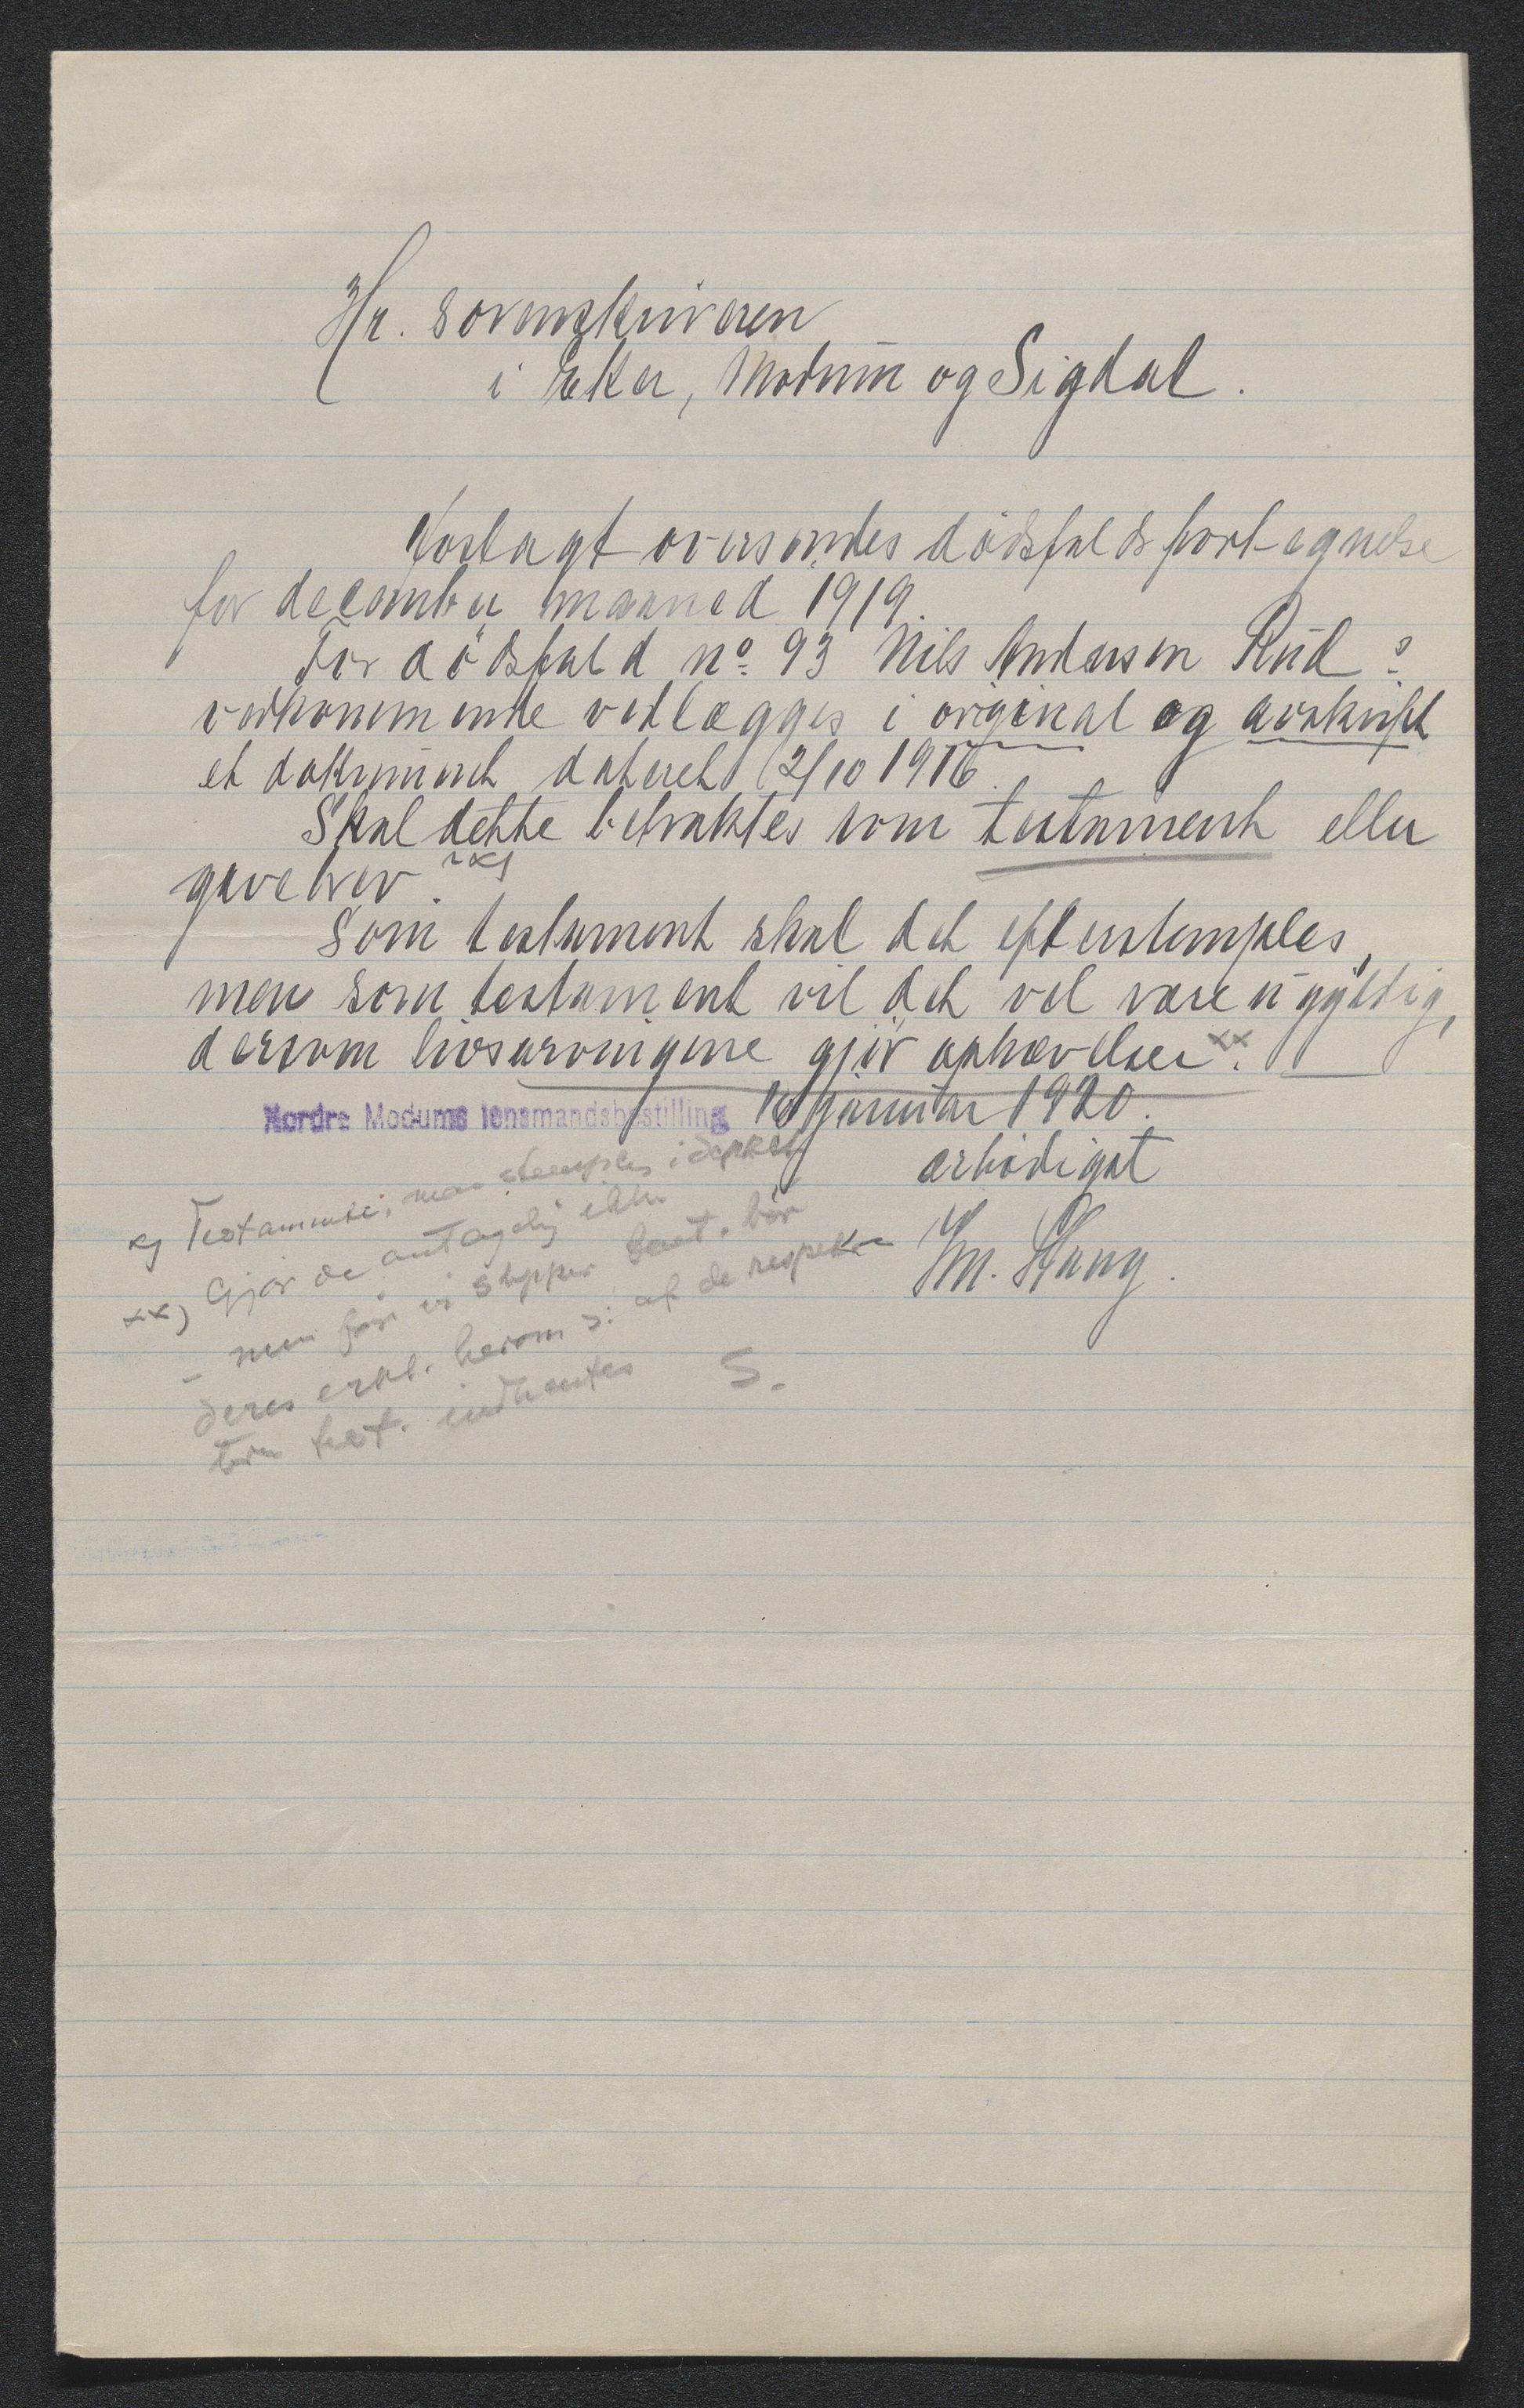 Hr. sorenskriveren
i Eker, Modum og Sigdal.
Vedlagt oversendes dödsfaldsfortegnelse
for december maaned 1919.
For dödsfald no. 93 Nils Andersen Rud
vedkommende vedlægges i original og avskrift
et dokument dateret 12/10 1916.
Skal dette betraktes som testament eller
gavebrev? x)
Som testament skal det efterstemples,
men som testament vil det vel være ugyldig,
dersom livsarvingene gjör ophævelser xx.
Nordre Modums lensmandsbestilling 16 januar 1920.
ærbödigst
x) Testamente; maa stemples i
xx) Gjör de antagelig ikke
- men för vi slipper test. bör
deres erkl. herom o: at de respek-
terer test. indhentes S.